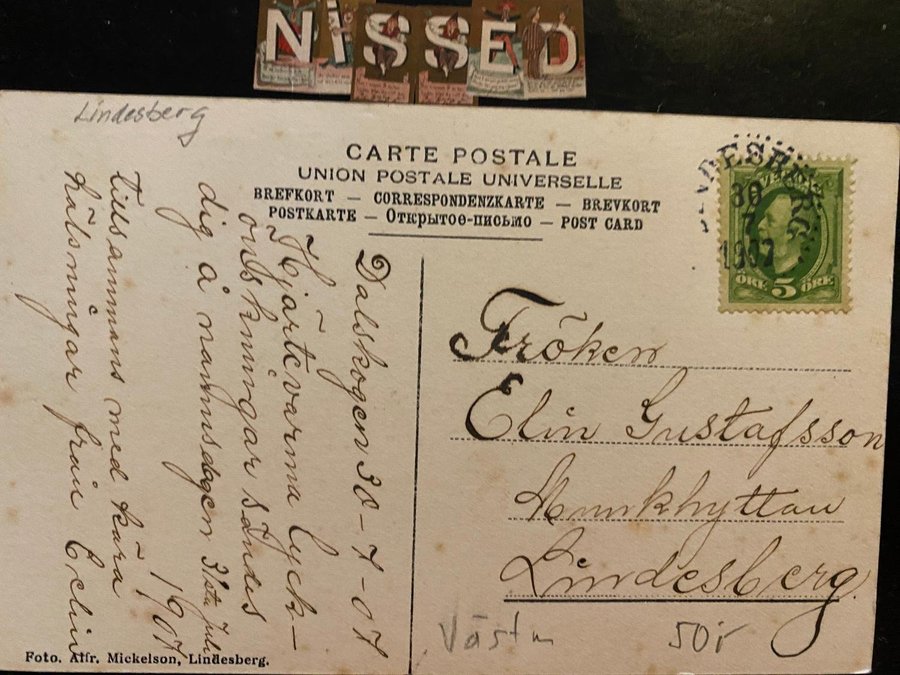 NISSED
Lindesberg
CARTE POSTALE
UNION POSTALE UNIVERSELLE
BREFKORT — CORRESPONDENZKARTE — BREVKORT
POSTKARTE — Открытое-письмо — POST CARD
LINDESBERG
30
7
1907
SVERIGE
ÖRE 5 ÖRE
Dalskogen 30-7-07
Hjärtevarma lyck-
önskningar sändes
dig å namnsdagen 31sta Juli
1907
Tillsammans med kära
hälsningar från Evelin
Fröken
Elin Gustafsson
Munkhyttan
Lindesberg
Västm
50:-
Foto. Alfr. Mickelson, Lindesberg.